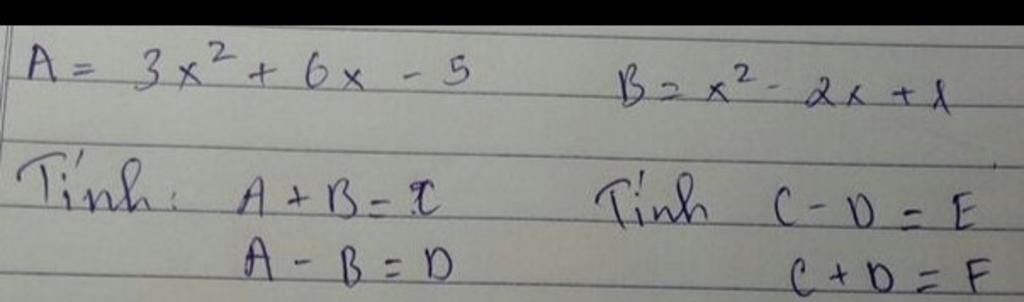 A = 3x² + 6x - 5 B = x² - 2x + 1
Tính: A + B = C Tính C - D = E
A - B = D C + D = F